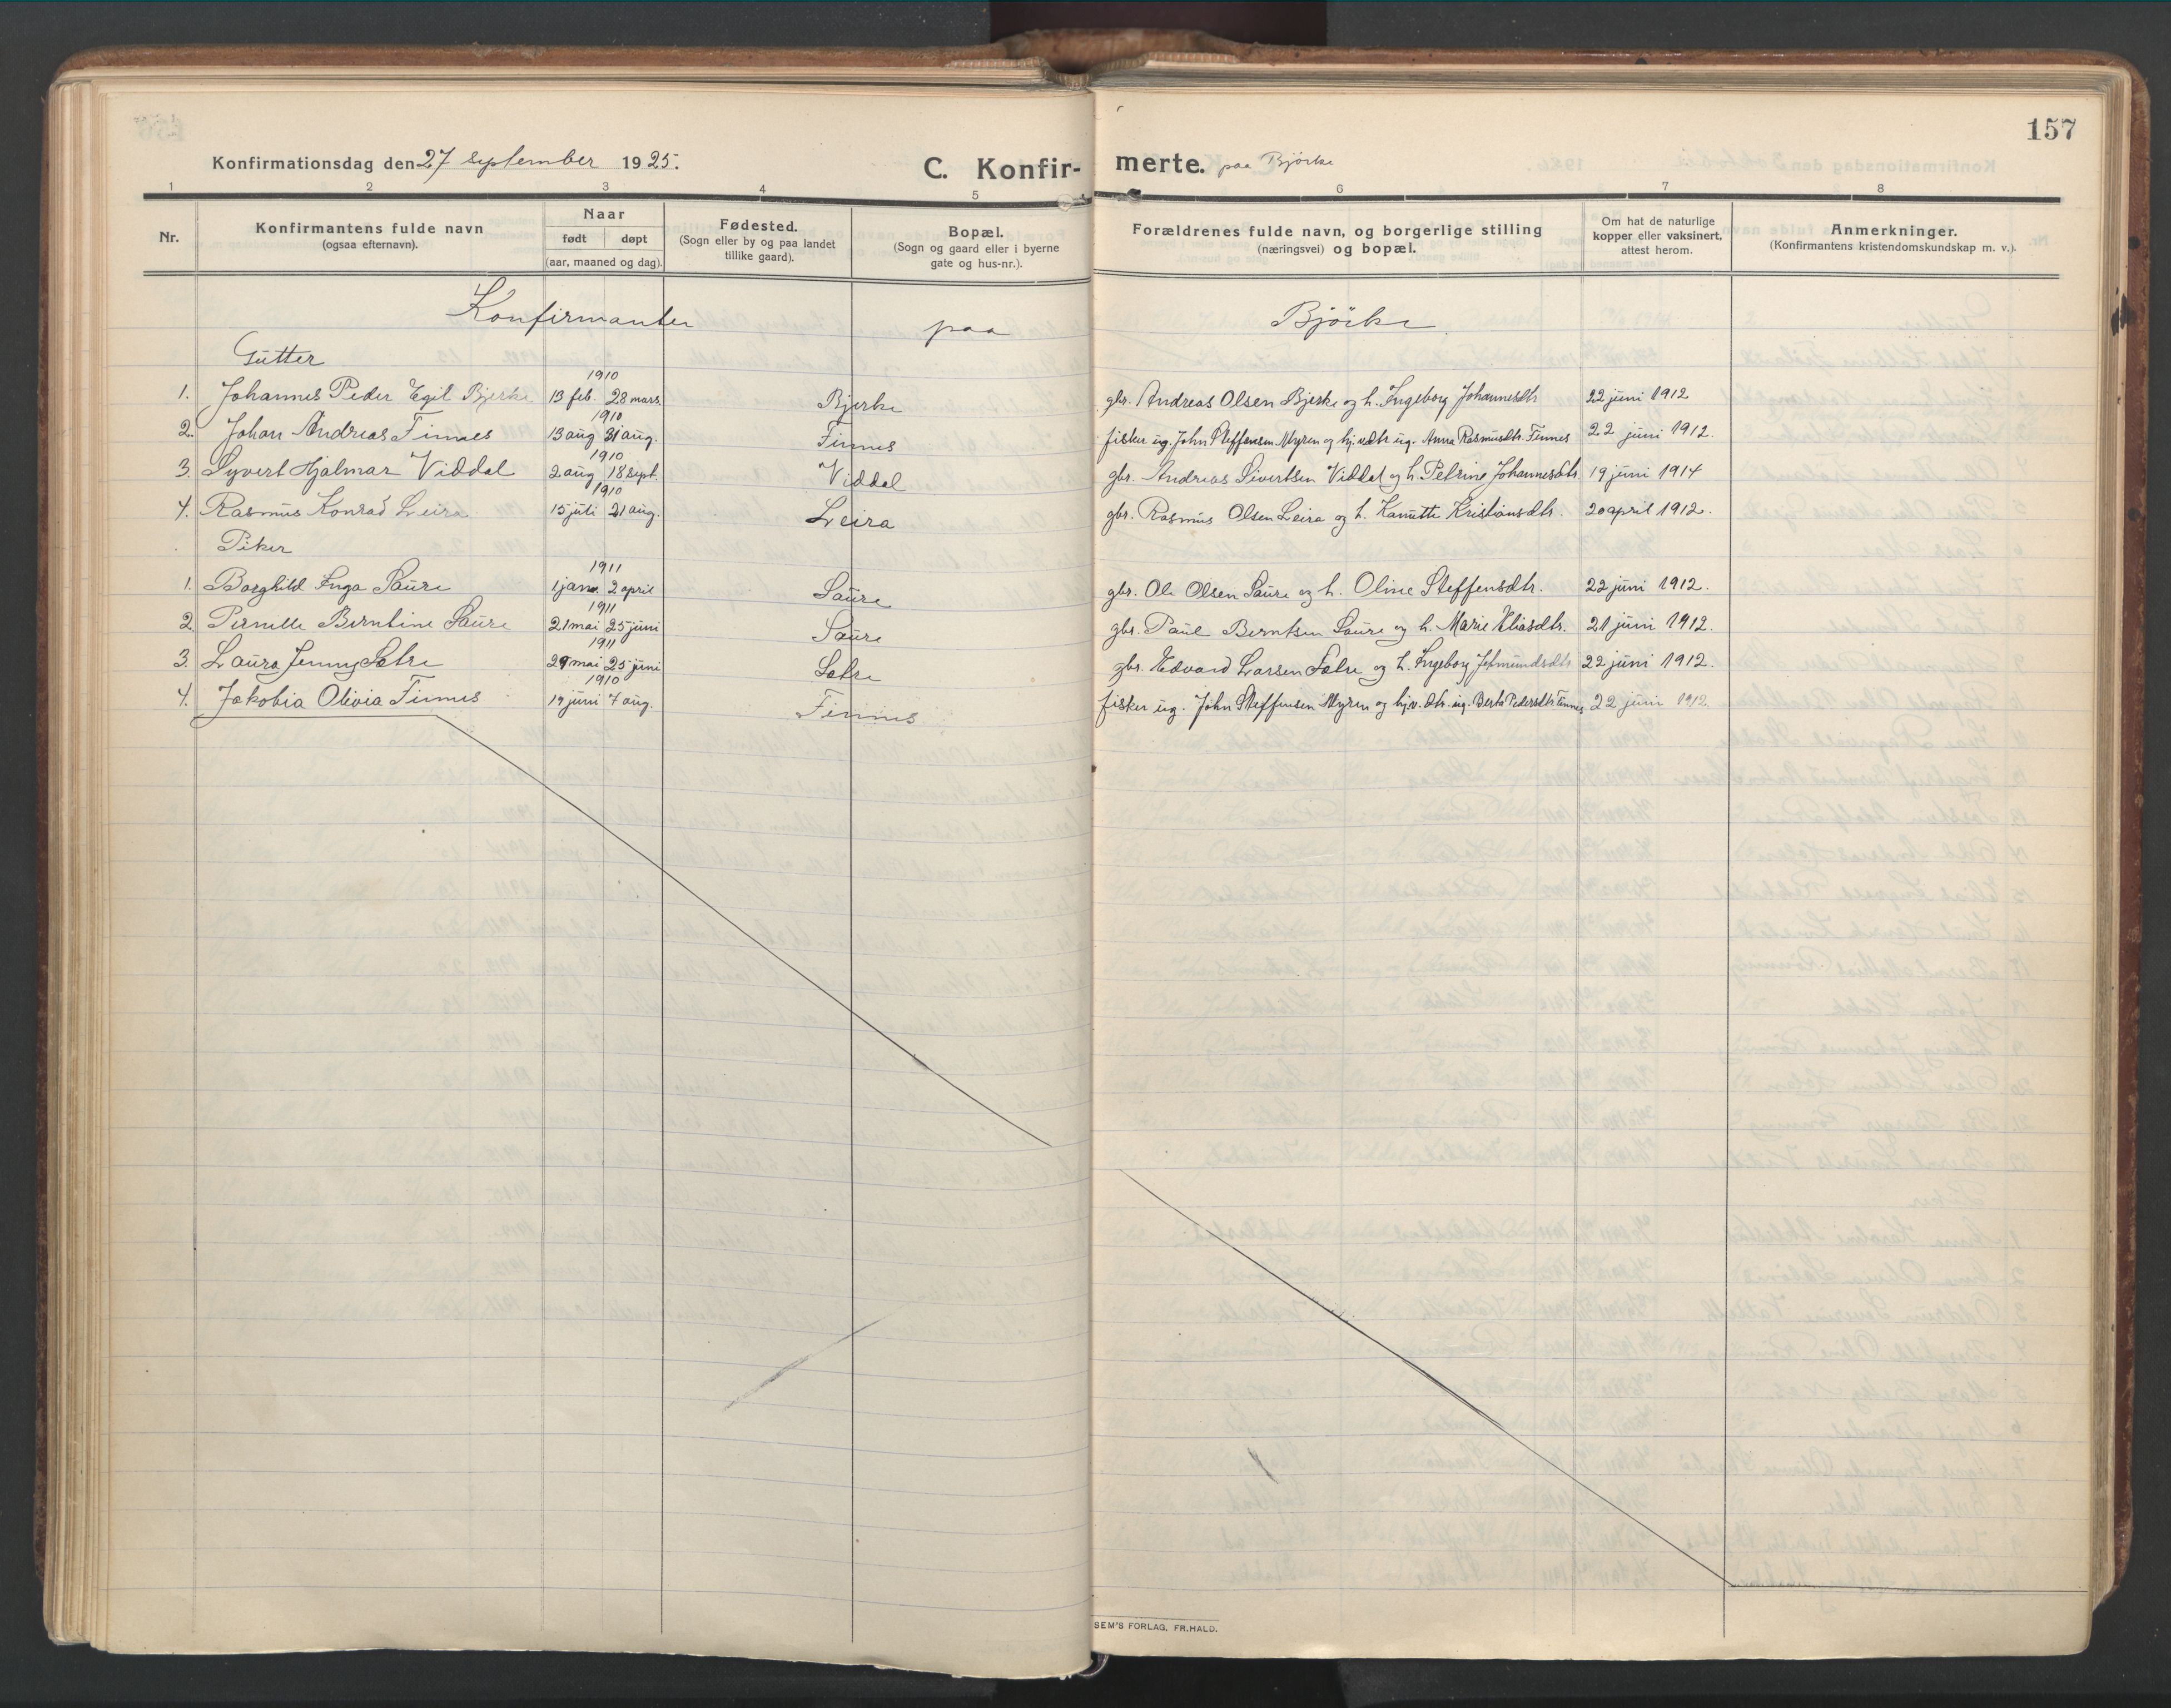 157
Konfirmationsdag den 27 september 1925. C. Konfirmerte. paa Björke
1 2 3 4 5 6 7 8
Nr. Konfirmantens fulde navn (ogsaa efternavn). Naar født døpt (aar, maaned og dag). Fødested. (Sogn eller by og paa landet tillike gaard). Bopæl. (Sogn og gaard eller i byerne gate og hus-nr.). Forældrenes fulde navn, og borgerlige stilling (næringsvei) og bopæl. Om hat de naturlige kopper eller vaksinert, attest herom. Anmerkninger. (Konfirmantens kristendomskundskap m. v.).
Konfirmanter paa Björke
Gutter
1910
1. Johannes Peder Egil Bjerke 13 feb. 28 mars. Bjerke gbr. Andreas Olsen Bjerke og h. Ingeborg Johannesdtr 22 juni 1912
1910
2. Johan Andreas Finnes 13 aug 31 aug. Finnes fisker ug. John Steffensen Myren og hj.v.dtr ug. Anna Rasmusdtr. Finnes 22 juni 1912.
1910
3. Syvert Hjalmar Viddal 2 aug 18 sept. Viddal gbr. Andreas Sivertsen Viddal og h. Petrine Johannesdtr. 19 juni 1914
1910
4. Rasmus Konrad Leira 15 juli 21 aug. Leira gbr. Rasmus Olsen Leira og h. Kanutte Kristiansdtr. 20 april 1912.
Piker
1911
1. Borghild Inga Saure 1 jan. 2 april Saure gbr. Ole Olsen Saure og h. Oline Steffensdtr. 22 juni 1912.
1911
2. Pernelle Berntine Saure 21 mai 25 juni Saure gbr. Paul Berntsen Saure og h. Marie Eliasdtr. 21 juni 1912.
1911
3. Laura Jenny Sætre 29 mai 25 juni Sætre gbr. Edvard Larsen Sætre og h. Ingeborg Jetmundsdtr 22 juni 1912.
1910
4. Jakobia Olivia Finnes 19 juni 7 aug. Finnes fisker ug. John Steffensen Myren og hj.v. dtr. ug. Berta Pedersdtr Finnes 22 juni 1912.
SEM'S FORLAG, FR. HALD.